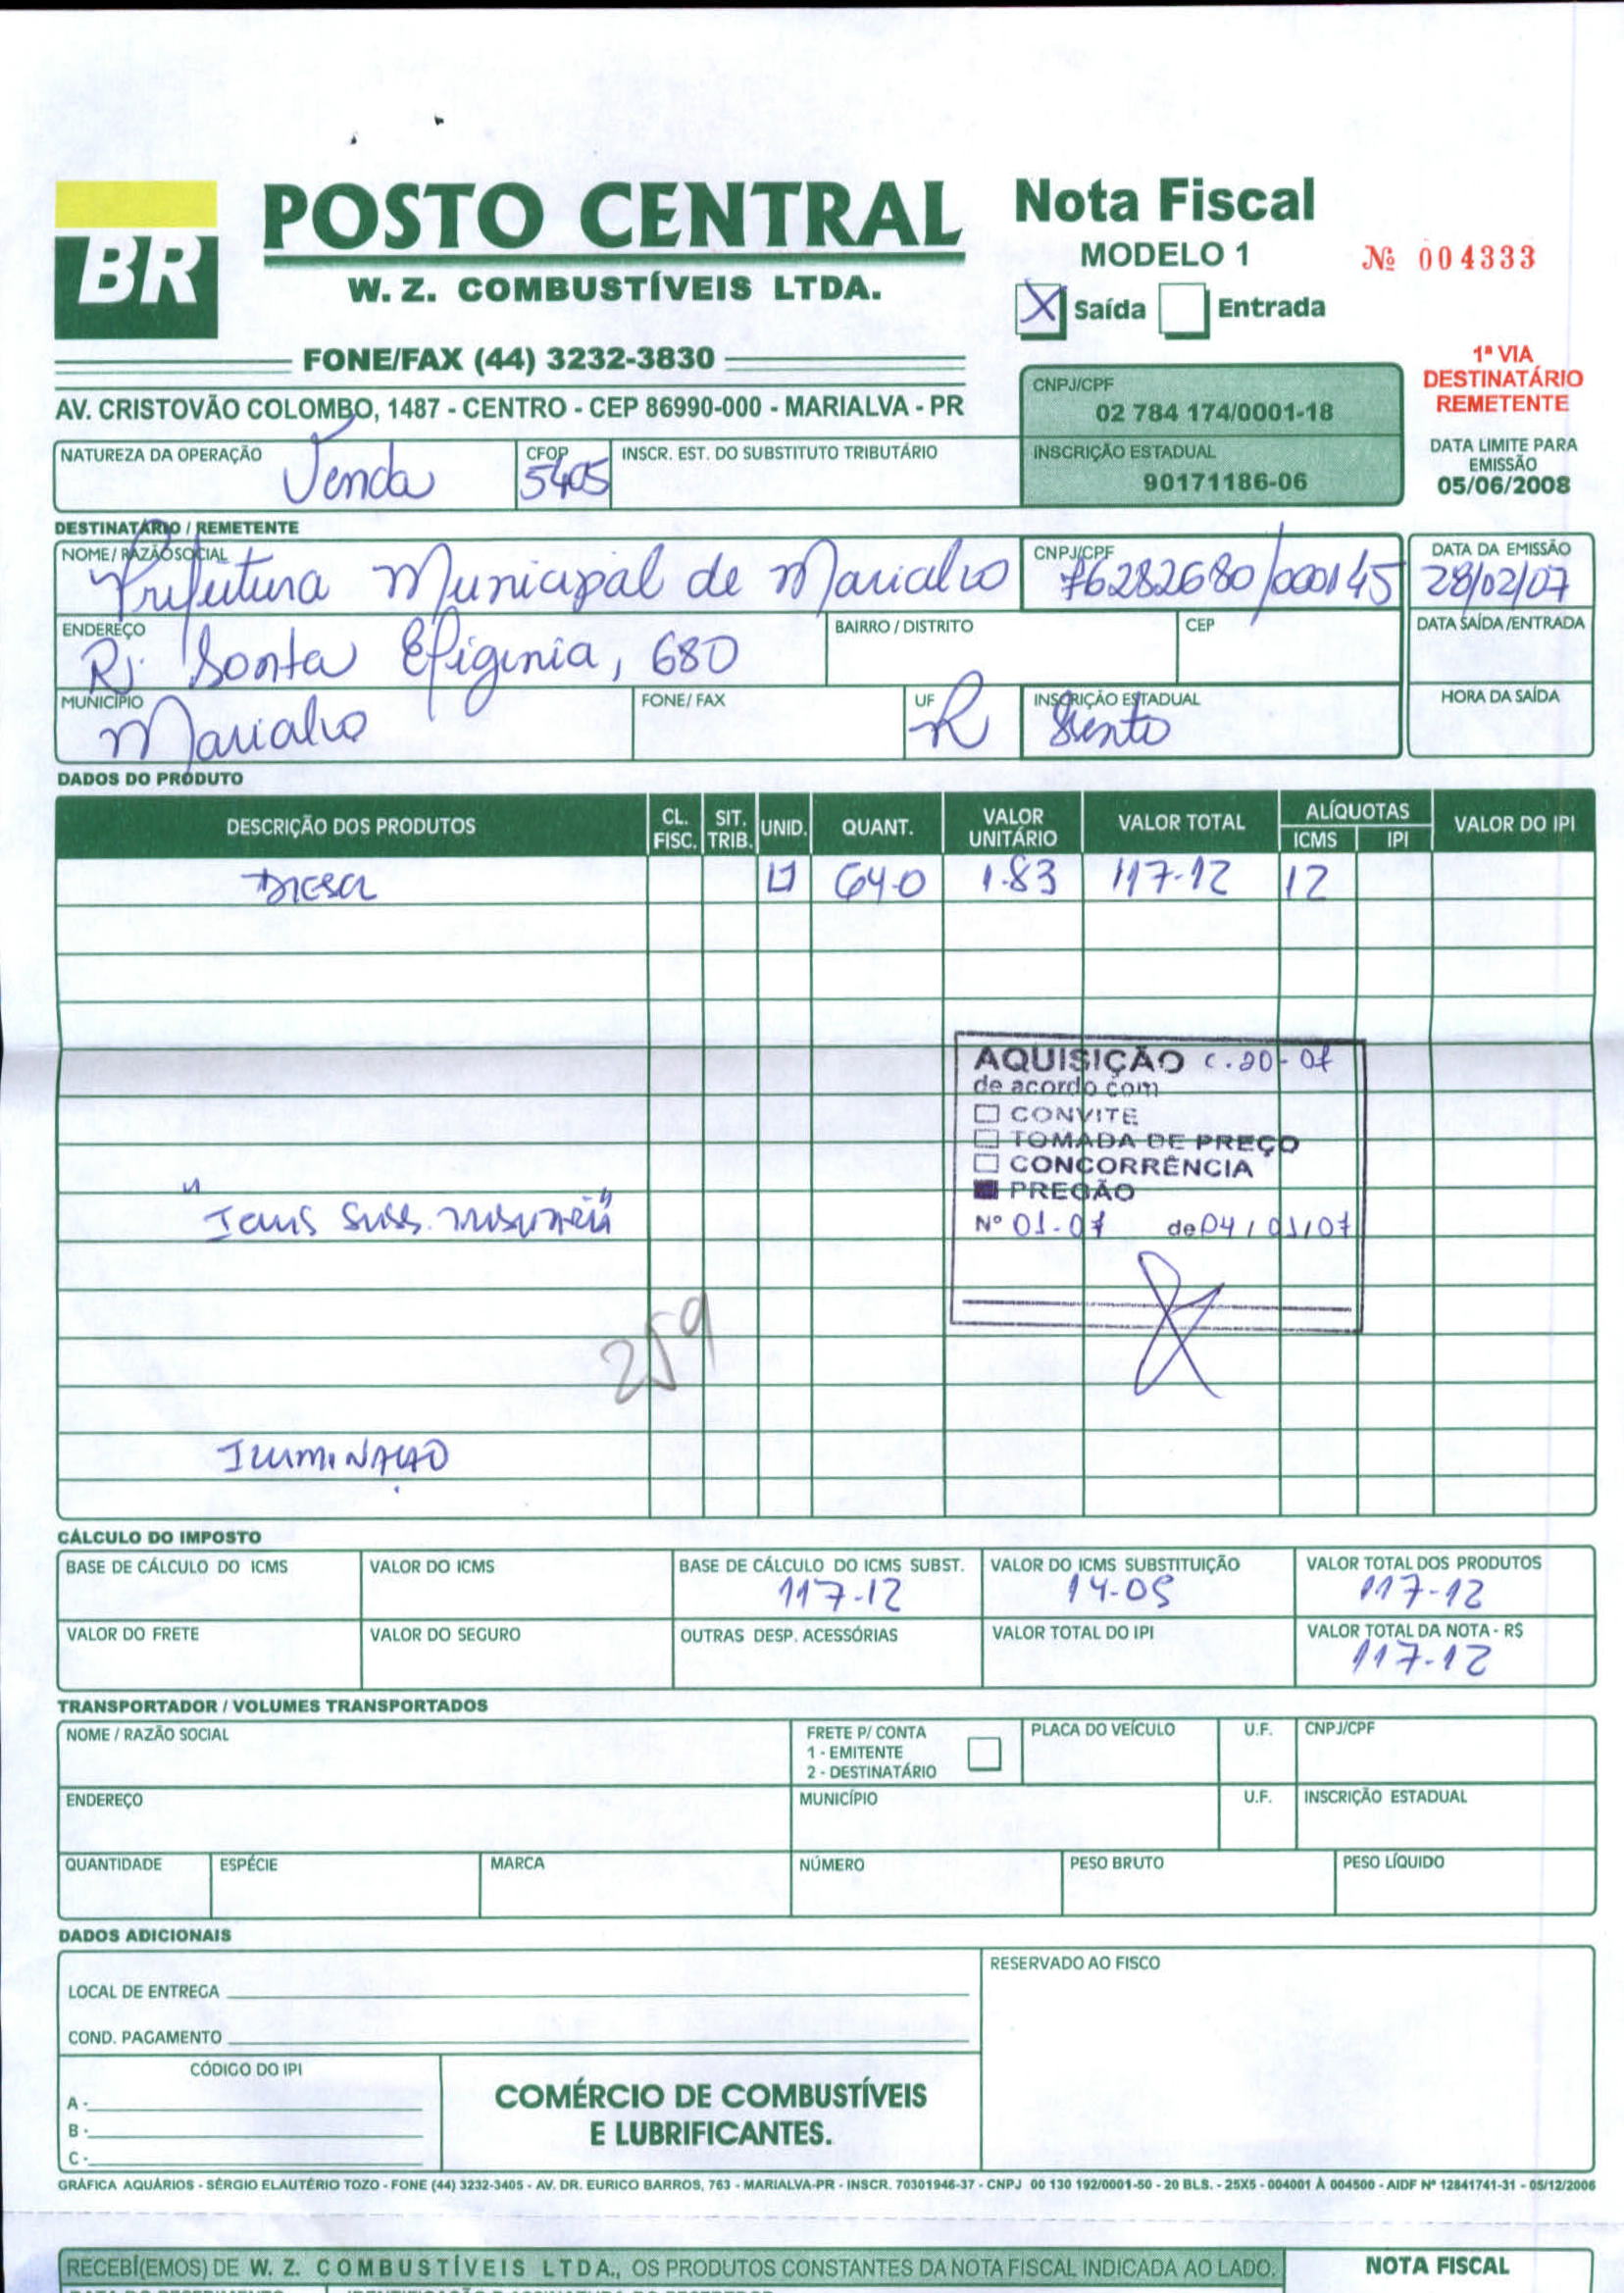 BR
POSTO CENTRAL
W. Z. COMBUSTÍVEIS LTDA.
FONE/FAX (44) 3232-3830
AV. CRISTOVÃO COLOMBO, 1487 - CENTRO - CEP 86990-000 - MARIALVA - PR
Nota Fiscal
MODELO 1
Nº 004333
X Saída Entrada
1ª VIA
DESTINATÁRIO
REMETENTE
CNPJ/CPF
02 784 174/0001-18
INSCRIÇÃO ESTADUAL
90171186-06
DATA LIMITE PARA
EMISSÃO
05/06/2008
NATUREZA DA OPERAÇÃO Venda CFOP 5405 INSCR. EST. DO SUBSTITUTO TRIBUTÁRIO
DESTINATÁRIO / REMETENTE
NOME / RAZÃO SOCIAL Prefeitura Municipal de Marialva CNPJ/CPF 76282680/000145 DATA DA EMISSÃO 28/02/07
ENDEREÇO R. Santa Efigenia, 680 BAIRRO / DISTRITO CEP DATA SAÍDA/ENTRADA
MUNICÍPIO Marialva FONE/ FAX UF INSCRIÇÃO ESTADUAL Isento HORA DA SAÍDA
DADOS DO PRODUTO
DESCRIÇÃO DOS PRODUTOS CL. FISC. SIT. TRIB. UNID. QUANT. VALOR UNITÁRIO VALOR TOTAL ALÍQUOTAS ICMS IPI VALOR DO IPI
Diesel 64.0 1.83 117-12 12
AQUISIÇÃO c.20-07
de acordo com
CONVITE
TOMADA DE PREÇO
CONCORRÊNCIA
PREGÃO
Nº 01-07 de 04/01/07
259
ILUMINAÇÃO
CÁLCULO DO IMPOSTO
BASE DE CÁLCULO DO ICMS VALOR DO ICMS BASE DE CÁLCULO DO ICMS SUBST. VALOR DO ICMS SUBSTITUIÇÃO VALOR TOTAL DOS PRODUTOS
117-12 14-05 117-12
VALOR DO FRETE VALOR DO SEGURO OUTRAS DESP. ACESSÓRIAS VALOR TOTAL DO IPI VALOR TOTAL DA NOTA - R$
117-12
TRANSPORTADOR / VOLUMES TRANSPORTADOS
NOME / RAZÃO SOCIAL FRETE P/ CONTA PLACA DO VEÍCULO U.F. CNPJ/CPF
1 - EMITENTE
2 - DESTINATÁRIO
ENDEREÇO MUNICÍPIO U.F. INSCRIÇÃO ESTADUAL
QUANTIDADE ESPÉCIE MARCA NÚMERO PESO BRUTO PESO LÍQUIDO
DADOS ADICIONAIS
LOCAL DE ENTREGA
COND. PAGAMENTO
RESERVADO AO FISCO
CÓDIGO DO IPI
A -
B -
C -
COMÉRCIO DE COMBUSTÍVEIS
E LUBRIFICANTES.
GRÁFICA AQUÁRIOS - SÉRGIO ELAUTÉRIO TOZO - FONE (44) 3232-3405 - AV. DR. EURICO BARROS, 763 - MARIALVA-PR - INSCR. 70301946-37 - CNPJ 00 130 192/0001-50 - 20 BLS. - 25X5 - 004001 À 004500 - AIDF Nº 12841741-31 - 05/12/2006
RECEBI(EMOS) DE W. Z. COMBUSTÍVEIS LTDA., OS PRODUTOS CONSTANTES DA NOTA FISCAL INDICADA AO LADO. NOTA FISCAL